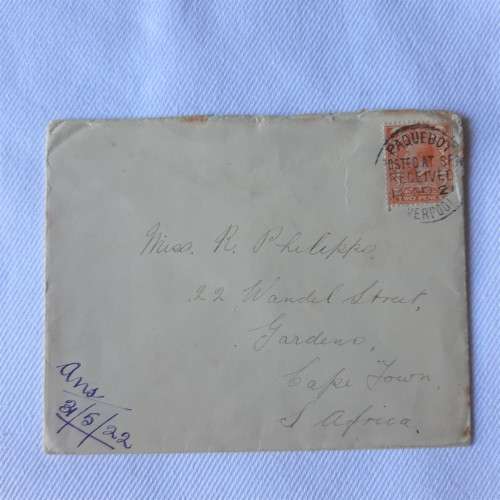 PAQUEBOT
POSTED AT SE
RECEIVED
ERPOOL
Miss. R. Philipps.
22 Wandel Street,
Gardens,
Cape Town.
S Africa.
Ans
31/5/22